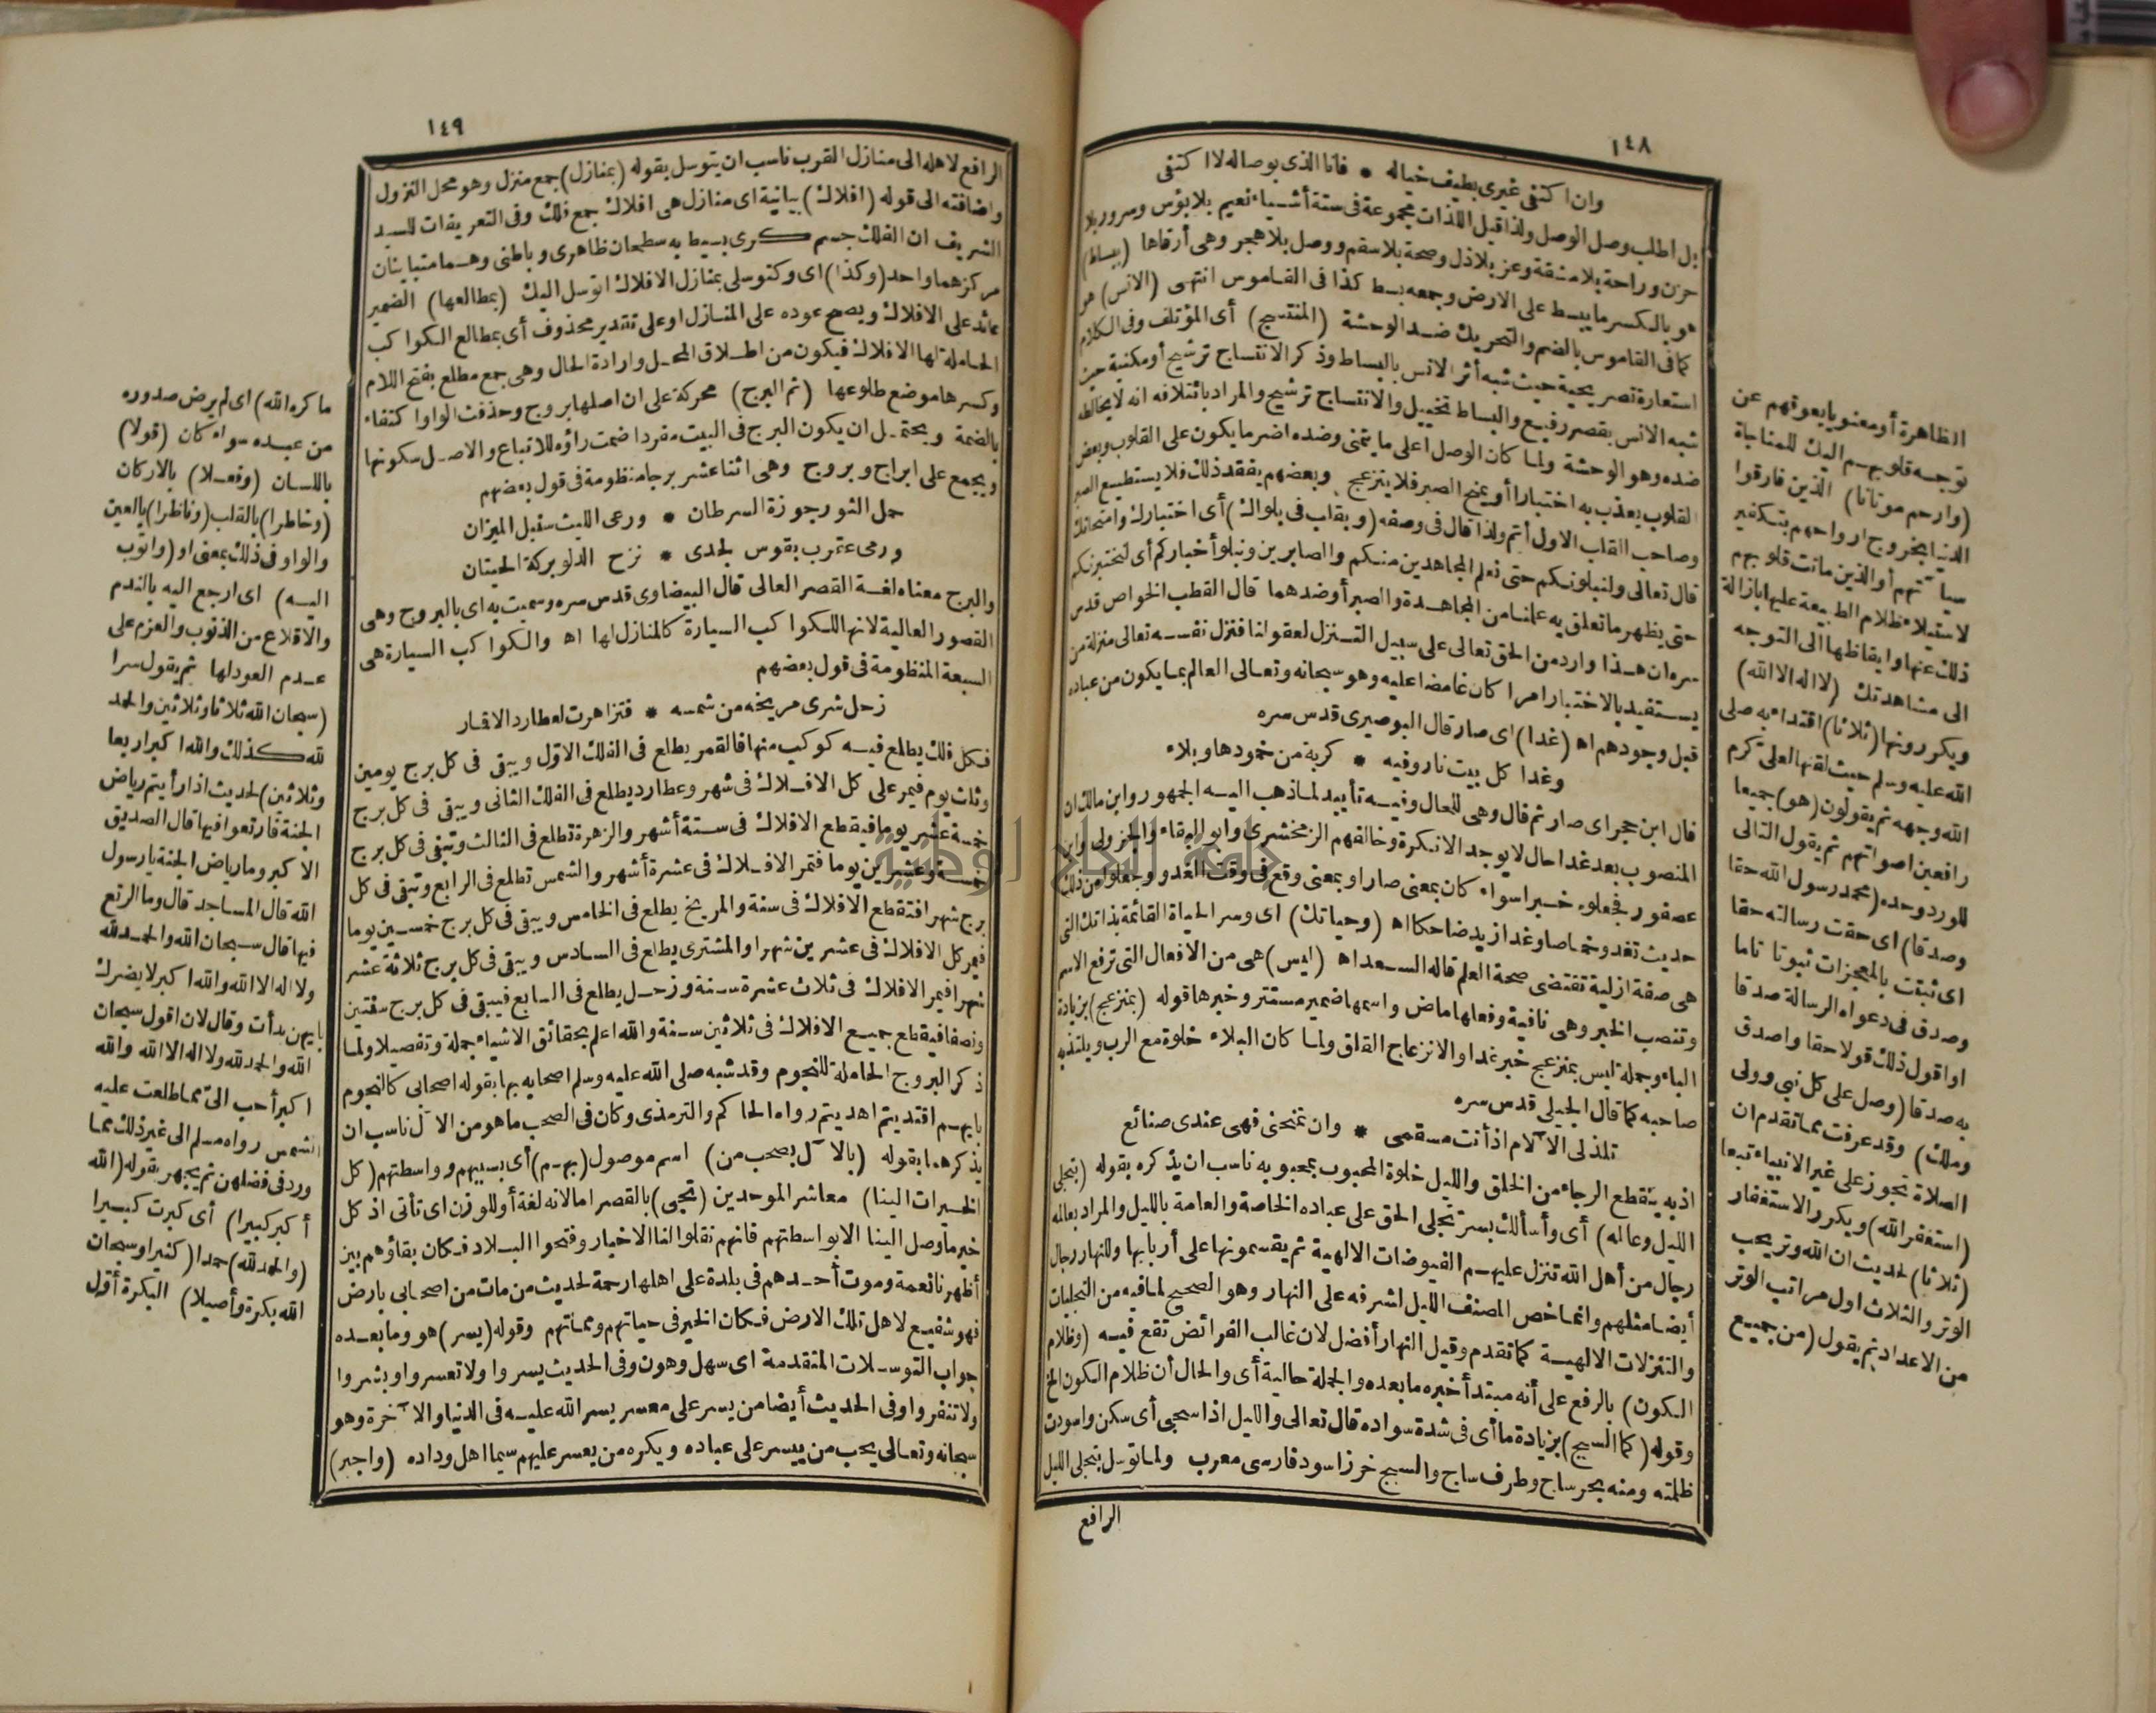 ١٤٨
وان اكتفى غيرى بطيف خياله * فانا الذى بوصاله لا اكتفى
بل اطلب وصل الوصل ولذا قيل اللذات مجموعة فى ستة أشياء نعيم بلا بؤس وسرور بلا
حزن وراحة بلا مشقة وعز بلا ذل وصحة بلا سقم ووصل بلا هجر وهى أرقاها (ببساط)
هو بالكسر ما يبسط على الارض وجمعه بسط كذا فى القاموس انتهى (الانس) هو
كما فى القاموس بالضم والتحريك ضد الوحشة (المنتسج) أى المؤتلف وفى الكلام
استعارة تصريحية حيث شبه أثر الانس بالبساط وذكر الانتساج ترشيح أو مكنية حيث
شبه الانس بقصر رفيع والبساط تخييل والانتساج ترشيح والمراد بائتلافه انه لا يخالطه
ضده وهو الوحشة ولما كان الوصل اعلى ما يتمنى وضده اضر ما يكون على القلوب وبعض
القلوب يعذب به اختبارا أو يمنح الصبر فلا ينزعج وبعضهم يفقد ذلك فلا يستطيع الصبر
وصاحب القلب الاول أتم ولذا قال فى وصفه (وبقلب فى بلواك) أى اختبارك وامتحانك
قال تعالى ولنبلونكم حتى نعلم المجاهدين منكم والصابرين ونبلو أخباركم أى لنختبرنكم
حتى يظهر ما تعلق به علمنا من المجاهدة والصبر أو ضدهما قال القطب الخواص قدس
سره ان هذا وارد من الحق تعالى على سبيل التنزل لعقولنا فنزل نفسه تعالى منزلة من
يستفيد بالاختبار امرا كان غامضا عليه وهو سبحانه وتعالى العالم بما يكون من عباده
قبل وجودهم اه (غدا) اى صار قال البوصيرى قدس سره
وغدا كل بيت نار وفيه * كربة من خمودها وبلاء
قال ابن حجر اى صار ثم قال وهى للحال وفيه تأييد لما ذهب اليه الجمهور وابن مالك ان
المنصوب بعد غدا حال لا يوجد الا نكرة وخالفهم الزمخشرى وابو البقاء والجزولى وابن
عصفور فجعلوه خبرا سواء كان بمعنى صار او بمعنى وقع فى وقت الغدو وجعلوا من ذلك
حديث تغدو خماصا وغدا زيد ضاحكا اه (وحياتك) اى وسر الحياة القائمة بذاتك التى
هى صفة ازلية تقتضى صحة العلم قاله السعد اه (ليس) هى من الافعال التى ترفع الاسم
وتنصب الخبر وهى نافية وفعلها ماض واسمها ضمير مستتر وخبرها قوله (بمنزعج) بزيادة
الباء وجملة ليس بمنزعج خبر غدا والانزعاج القلق ولما كان البلاء خلوة مع الرب ويلتذ به
صاحبه كما قال الجيلى قدس سره
تلذ لى الآلام اذ أنت مسقمى * وان تمتحنى فهى عندى صنائع
اذ به ينقطع الرجاء من الخلق والليل خلوة المحبوب بمحبوبه ناسب ان يذكره بقوله (بتجلى
الليل وعالمه) أى وأسألك بسر تجلى الحق على عباده الخاصة والعامة بالليل والمراد بعالمه
رجال من أهل الله تنزل عليهم الفيوضات الالهية ثم يقسمونها على أربابها وللنهار رجال
أيضا مثلهم وانما خص المصنف الليل لشرفه على النهار وهو الصحيح لما فيه من التجليات
والتنزلات الالهية كما تقدم وقيل النهار أفضل لان غالب الفرائض تقع فيه (وظلام
الكون) بالرفع على أنه مبتدأ خبره ما بعده والجملة حالية أى والحال أن ظلام الكون الخ
وقوله (كما السبج) بزيادة ما أى فى شدة سواده قال تعالى والليل اذا سجى أى سكن واسودت
ظلمته ومنه بحر ساج وطرف ساج والسبج خرز اسود فارسى معرب ولما توسل بتجلى الليل
الرافع
الظاهرة أو معنويا يعوقهم عن
توجه قلوبهم اليك للمناجاة
(وارحم موتانا) الذين فارقوا
الدنيا بخروج ارواحهم بتكفير
سيآتهم أو الذين ماتت قلوبهم
لاستيلاء ظلام الطبيعة عليها بازالة
ذلك عنها وايقاظها الى التوجه
الى مشاهدتك (لا اله الا الله)
ويكررونها (ثلاثا) اقتداء به صلى
الله عليه وسلم حيث لقنها العلى كرم
الله وجهه ثم يقولون (هو) جميعا
رافعين اصواتهم ثم يقول التالى
للورد وحده (محمد رسول الله حقا
وصدقا) اى حقت رسالته حقا
اى ثبتت بالمعجزات ثبوتا تاما
وصدق فى دعواه الرسالة صدقا
او اقول ذلك قولا حقا واصدق
به صدقا (وصل على كل نبى وولى
وملك) وقد عرفت مما تقدم ان
الصلاة تجوز على غير الانبياء تبعا
(استغفر الله) ويكرر الاستغفار
(ثلاثا) لحديث ان الله وتر يحب
الوتر والثلاث اول مراتب الوتر
من الاعداد ثم يقول (من جميع
١٤٩
الرافع لاهله الى منازل القرب ناسب ان يتوسل بقوله (بمنازل) جمع منزل وهو محل النزول
واضافته الى قوله (افلاك) بيانية اى منازل هى افلاك جمع فلك وفى التعريفات للسيد
الشريف ان الفلك جسم كرى بسيط به سطحان ظاهرى وباطنى وهما متباينان
مركزهما واحد (وكذا) اى وكتوسلى بمنازل الافلاك اتوسل اليك (بمطالعها) الضمير
عائد على الافلاك ويصح عوده على المنازل او على تقدير محذوف أى بمطالع الكواكب
الحاملة لها الافلاك فيكون من اطلاق المحل وارادة الحال وهى جمع مطلع بفتح اللام
وكسرها موضع طلوعها (ثم البرج) محركة على ان اصلها بروج وحذفت الواو اكتفاء
بالضمة ويحتمل ان يكون البرج فى البيت مفردا ضمت راؤه للاتباع والاصل سكونها
ويجمع على ابراج وبروج وهى اثنا عشر برجا منظومة فى قول بعضهم
حمل الثور جوزة السرطان * ورعى الليث سنبل الميزان
ورمى عقرب بقوس لجدى * نزح الدلو بركة الحيتان
والبرج معناه لغة القصر العالى قال البيضاوى قدس سره وسميت به اى بالبروج وهى
القصور العالية لانها للكواكب السيارة كالمنازل لها اه والكواكب السيارة هى
السبعة المنظومة فى قول بعضهم
زحل شرى مريخه من شمسه * فتزاهرت لعطارد الاقمار
فكل فلك يطلع فيه كوكب منها فالقمر يطلع فى الفلك الاول ويبقى فى كل برج يومين
وثلث يوم فيمر على كل الافلاك فى شهر وعطارد يطلع فى الفلك الثانى ويبقى فى كل برج
خمسة عشر يوما فيقطع الافلاك فى ستة أشهر والزهرة تطلع فى الثالث وتبقى فى كل برج
خمسة وعشرين يوما فتمر الافلاك فى عشرة أشهر والشمس تطلع فى الرابع وتبقى فى كل
برج شهرا فتقطع الافلاك فى سنة والمريخ يطلع فى الخامس ويبقى فى كل برج خمسين يوما
فيمر كل الافلاك فى عشرين شهرا والمشترى يطلع فى السادس ويبقى فى كل برج ثلاثة عشر
شهرا فيمر الافلاك فى ثلاث عشرة سنة وزحل يطلع فى السابع فيبقى فى كل برج سنتين
ونصفا فيقطع جميع الافلاك فى ثلاثين سنة والله اعلم بحقائق الاشياء جملة وتفصيلا ولما
ذكر البروج الحاملة للنجوم وقد شبه صلى الله عليه وسلم اصحابه بها بقوله اصحابى كالنجوم
بايهم اقتديتم اهديتم رواه الحاكم والترمذى وكان فى الصحب ما هو من الآل ناسب ان
يذكرهما بقوله (بالآل بصحب من) اسم موصول (بهم) أى بسببهم وواسطتهم (كل
الخيرات الينا) معاشر الموحدين (تجى) بالقصر اما لانه لغة أو للوزن اى تأتى اذ كل
خير ما وصل الينا الا بواسطتهم فانهم نقلوا لنا الاخبار وفتحوا البلاد فكان بقاؤهم بين
أظهرنا نعمة وموت أحدهم فى بلدة على اهلها رحمة لحديث من مات من اصحابى بارض
فهو شفيع لاهل تلك الارض فكان الخير فى حياتهم ومماتهم وقوله (يسر) هو وما بعده
جواب التوسلات المتقدمة اى سهل وهون وفى الحديث يسروا ولا تعسروا وبشروا
ولا تنفروا وفى الحديث أيضا من يسر على معسر يسر الله عليه فى الدنيا والآخرة وهو
سبحانه وتعالى يحب من ييسر على عباده ويكره من يعسر عليهم سيما اهل وداده (واجبر)
ما كره الله) اى لم يرض صدوره
من عبده سواء كان (قولا)
باللسان (وفعلا) بالاركان
(وخاطرا) بالقلب (وناظرا) بالعين
والواو فى ذلك بمعنى او (واتوب
اليه) اى ارجع اليه بالندم
والاقلاع من الذنوب والعزم على
عدم العود لها ثم يقول سرا
(سبحان الله ثلاثا وثلاثين والحمد
لله كذلك والله اكبر اربعا
وثلاثين) لحديث اذا رأيتم رياض
الجنة فارتعوا فيها قال الصديق
الاكبر وما رياض الجنة يا رسول
الله قال المساجد قال وما الرتع
فيها قال سبحان الله والحمد لله
ولا اله الا الله والله اكبر لا يضرك
بايهن بدأت وقال لان اقول سبحان
الله والحمد لله ولا اله الا الله والله
اكبر أحب الى مما طلعت عليه
الشمس رواه مسلم الى غير ذلك مما
ورد فى فضلهن ثم يجهر بقوله (الله
أكبر كبيرا) أى كبرت كبيرا
(والحمد لله) حمدا (كثيرا وسبحان
الله بكرة وأصيلا) البكرة أول
جامعة النجاح الوطنية